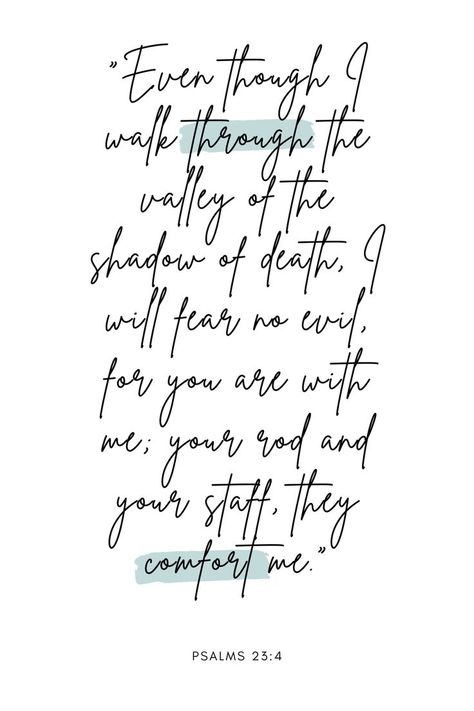 "Even though I
walk through the
valley of the
shadow of death, I
will fear no evil,
for you are with
me; your rod and
your staff, they
comfort me."
PSALMS 23:4